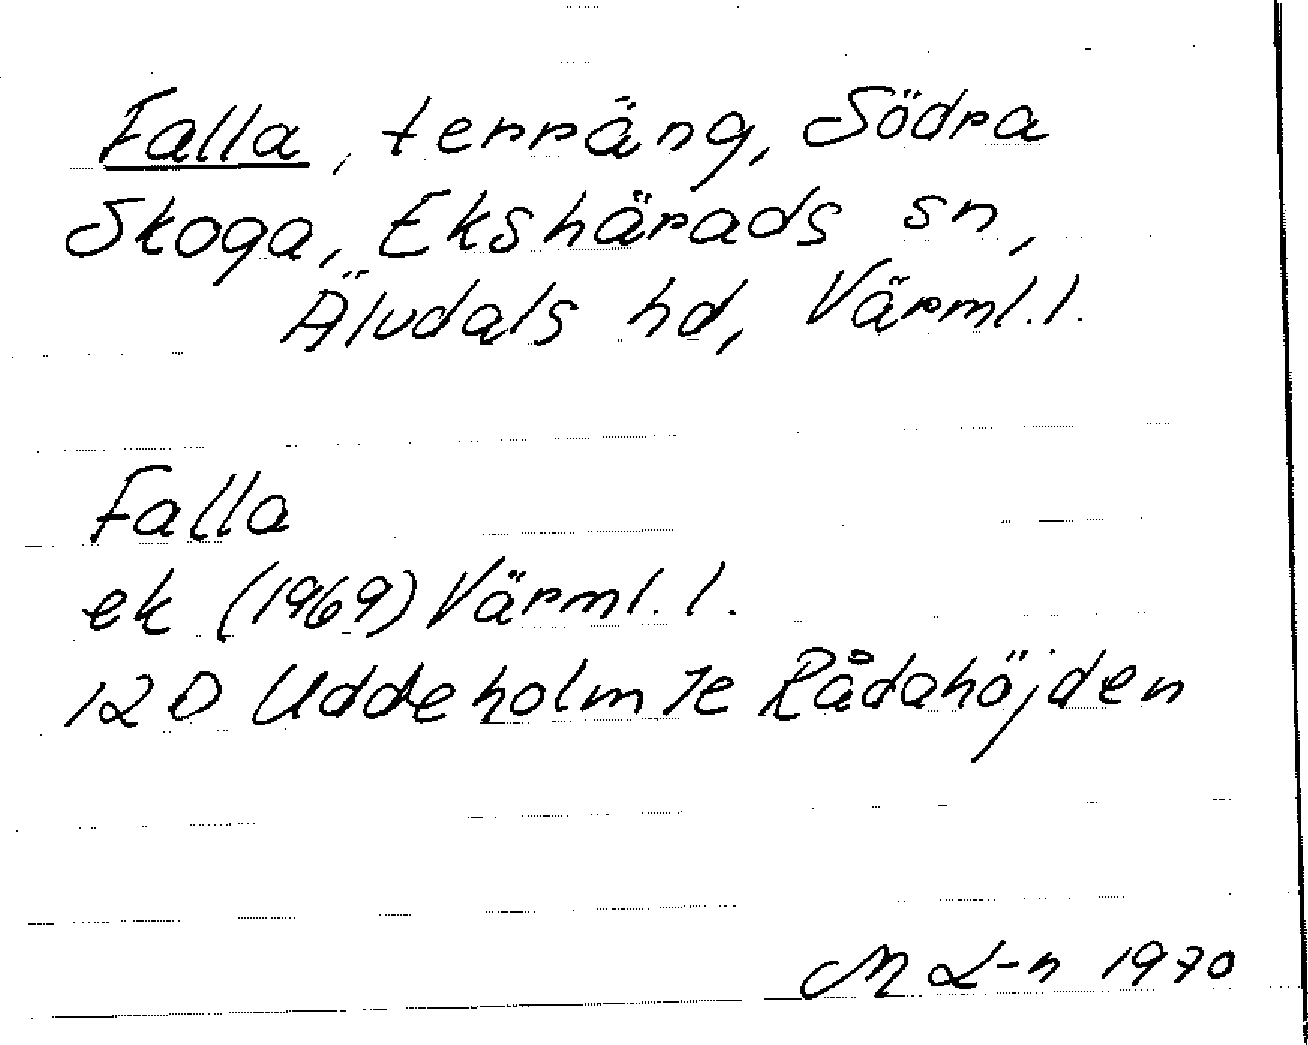 Falla, terräng, Södra
Skoga, Ekshärads sn,
Älvdals hd, Värml. l.
Falla
ek (1969) Värml. l.
12 D Uddeholm 7e Rådahöjden
M L-n 1970